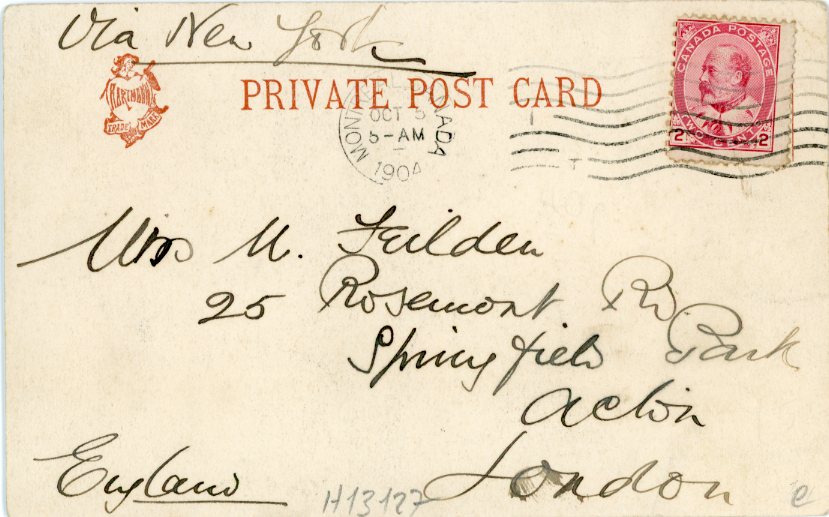 Via New York
HARTMANN
TRADE MARK
PRIVATE POST CARD
CANADA POSTAGE
2 TWO CENTS 2
OCT 5
5-AM
1904
Miss M. Feilden
25 Rosemont Rd.
Springfield Park
Acton
London
England
H13127
e